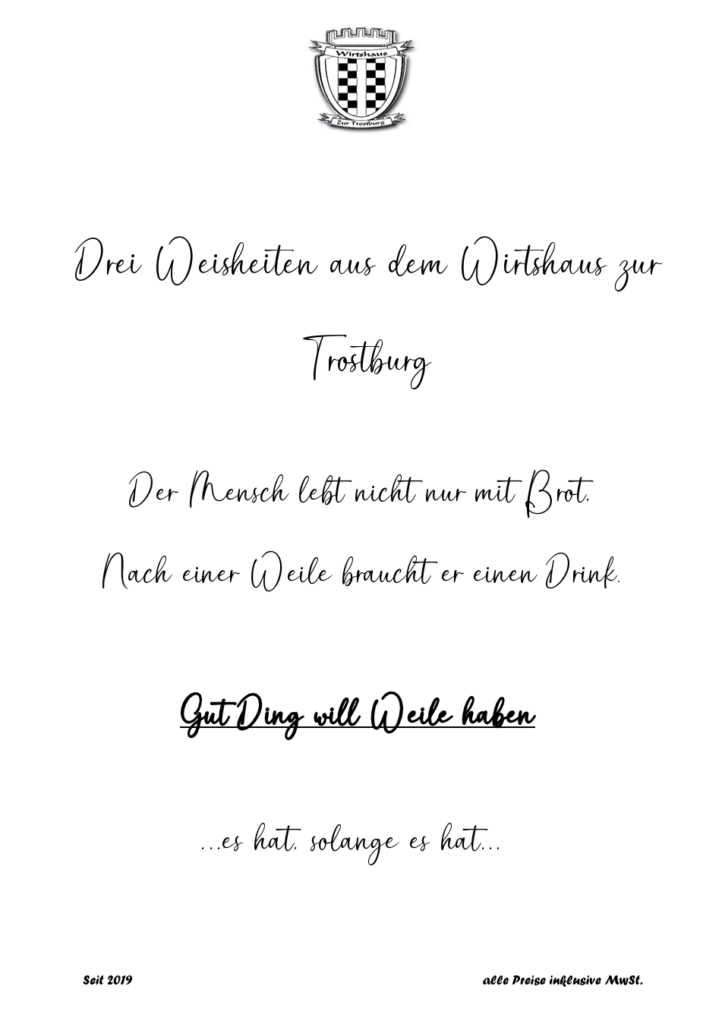 Wirtshaus
Zur Trostburg
Drei Weisheiten aus dem Wirtshaus zur
Trostburg
Der Mensch lebt nicht nur mit Brot.
Nach einer Weile braucht er einen Drink.
Gut Ding will Weile haben
...es hat, solange es hat...
Seit 2019
alle Preise inklusive MwSt.